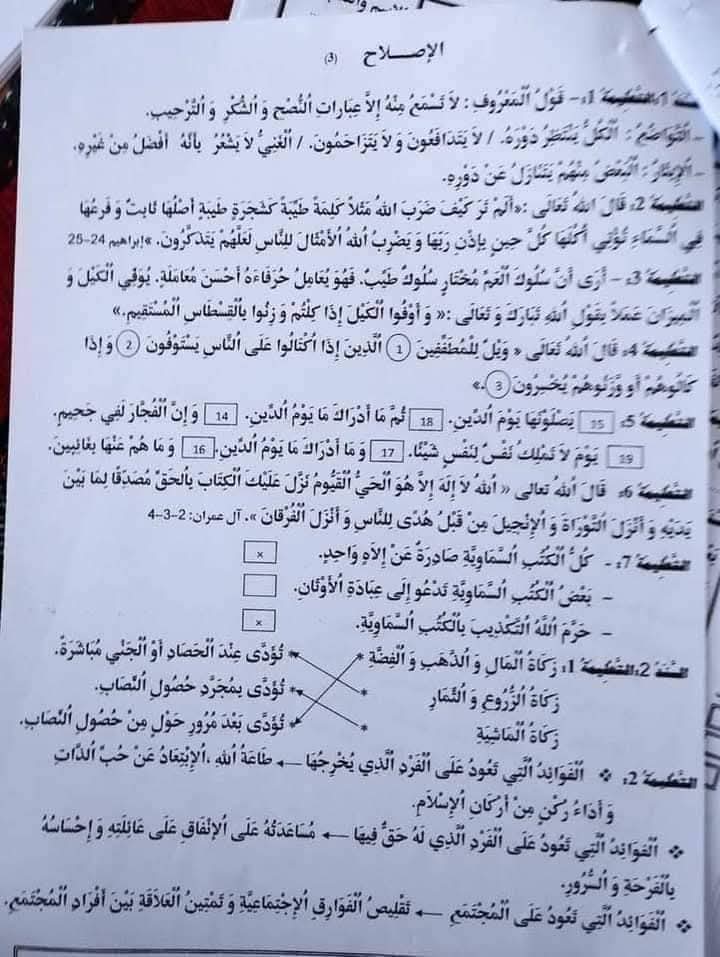 الإصـــلاح (3)
سند 1: التعليمة 1: – قَوْلُ الْمَعْرُوفِ : لاَ تَسْمَعُ مِنْهُ إِلاَّ عِبَارَاتِ النُّصْحِ وَ الشُّكْرِ وَ التَّرْحِيبِ.
– التَّوَاضُعُ : الْكُلُّ يَنْتَظِرُ دَوْرَهُ. / لاَ يَتَدَافَعُونَ وَ لاَ يَتَزَاحَمُونَ. / الْغَنِيُّ لاَ يَشْعُرُ بِأَنَّهُ أَفْضَلُ مِنْ غَيْرِهِ.
– الإِيثَارُ : الْبَعْضُ مِنْهُمْ يَتَنَازَلُ عَنْ دَوْرِهِ.
التعليمة 2: قَالَ اللهُ تَعَالَى :«أَلَمْ تَرَ كَيْفَ ضَرَبَ اللهُ مَثَلاً كَلِمَةً طَيِّبَةً كَشَجَرَةٍ طَيِّبَةٍ أَصْلُهَا ثَابِتٌ وَ فَرْعُهَا
فِي السَّمَاءِ تُؤْتِي أُكُلَهَا كُلَّ حِينٍ بِإِذْنِ رَبِّهَا وَ يَضْرِبُ اللهُ الْأَمْثَالَ لِلنَّاسِ لَعَلَّهُمْ يَتَذَكَّرُونَ.» إبراهيم 24-25
التعليمة 3: – أَرَى أَنَّ سُلُوكَ الْعَمِّ مُخْتَارٍ سُلُوكٌ طَيِّبٌ. فَهُوَ يُعَامِلُ حُرَفَاءَهُ أَحْسَنَ مُعَامَلَةٍ. يُوَفِّي الْكَيْلَ وَ
الْمِيزَانَ عَمَلاً بِقَوْلِ اللهِ تَبَارَكَ وَ تَعَالَى :« وَ أَوْفُوا الْكَيْلَ إِذَا كِلْتُمْ وَ زِنُوا بِالْقِسْطَاسِ الْمُسْتَقِيمِ.»
التعليمة 4: قَالَ اللهُ تَعَالَى « وَيْلٌ لِلْمُطَفِّفِينَ (1) الَّذِينَ إِذَا اكْتَالُوا عَلَى النَّاسِ يَسْتَوْفُونَ (2) وَ إِذَا
كَالُوهُمْ أَوْ وَزَنُوهُمْ يُخْسِرُونَ (3).»
التعليمة 5: 15 يَصْلَوْنَهَا يَوْمَ الدِّينِ. 18 ثُمَّ مَا أَدْرَاكَ مَا يَوْمُ الدِّينِ. 14 وَ إِنَّ الْفُجَّارَ لَفِي جَحِيمٍ.
19 يَوْمَ لاَ تَمْلِكُ نَفْسٌ لِنَفْسٍ شَيْئًا. 17 وَ مَا أَدْرَاكَ مَا يَوْمُ الدِّينِ. 16 وَ مَا هُمْ عَنْهَا بِغَائِبِينَ.
التعليمة 6: قَالَ اللهُ تعالى « اللهُ لاَ إِلَهَ إِلاَّ هُوَ الْحَيُّ الْقَيُّومُ نَزَّلَ عَلَيْكَ الْكِتَابَ بِالْحَقِّ مُصَدِّقًا لِمَا بَيْنَ
يَدَيْهِ وَ أَنْزَلَ التَّوْرَاةَ وَ الْإِنْجِيلَ مِنْ قَبْلُ هُدًى لِلنَّاسِ وَ أَنْزَلَ الْفُرْقَانَ ». آل عمران: 2-3-4
التعليمة 7: - كُلُّ الْكُتُبِ السَّمَاوِيَّةِ صَادِرَةٌ عَنْ إِلاَهٍ وَاحِدٍ. ×
– بَعْضُ الْكُتُبِ السَّمَاوِيَّةِ تَدْعُو إِلَى عِبَادَةِ الْأَوْثَانِ.
– حَرَّمَ اللهُ التَّكْذِيبَ بِالْكُتُبِ السَّمَاوِيَّةِ. ×
السند 2: التعليمة 1: زَكَاةُ الْمَالِ وَ الذَّهَبِ وَ الْفِضَّةِ * * تُؤَدَّى عِنْدَ الْحَصَادِ أَوْ الْجَنْيِ مُبَاشَرَةً.
زَكَاةُ الزُّرُوعِ وَ الثِّمَارِ * * تُؤَدَّى بِمُجَرَّدِ حُصُولِ النِّصَابِ.
زَكَاةُ الْمَاشِيَةِ * * تُؤَدَّى بَعْدَ مُرُورِ حَوْلٍ مِنْ حُصُولِ النِّصَابِ.
التعليمة 2: ❖ الْفَوَائِدُ الَّتِي تَعُودُ عَلَى الْفَرْدِ الَّذِي يُخْرِجُهَا ← طَاعَةُ اللهِ ،الإِبْتِعَادُ عَنْ حُبِّ الذَّاتِ
وَ أَدَاءُ رُكْنٍ مِنْ أَرْكَانِ الإِسْلاَمِ.
❖ الْفَوَائِدُ الَّتِي تَعُودُ عَلَى الْفَرْدِ الَّذِي لَهُ حَقٌّ فِيهَا ← مُسَاعَدَتُهُ عَلَى الإِنْفَاقِ عَلَى عَائِلَتِهِ وَ إِحْسَاسُهُ
بِالْفَرْحَةِ وَ السُّرُورِ.
❖ الْفَوَائِدُ الَّتِي تَعُودُ عَلَى الْمُجْتَمَعِ ← تَقْلِيصُ الْفَوَارِقِ الإِجْتِمَاعِيَّةِ وَ تَمْتِينُ الْعَلاَقَةِ بَيْنَ أَفْرَادِ الْمُجْتَمَعِ.